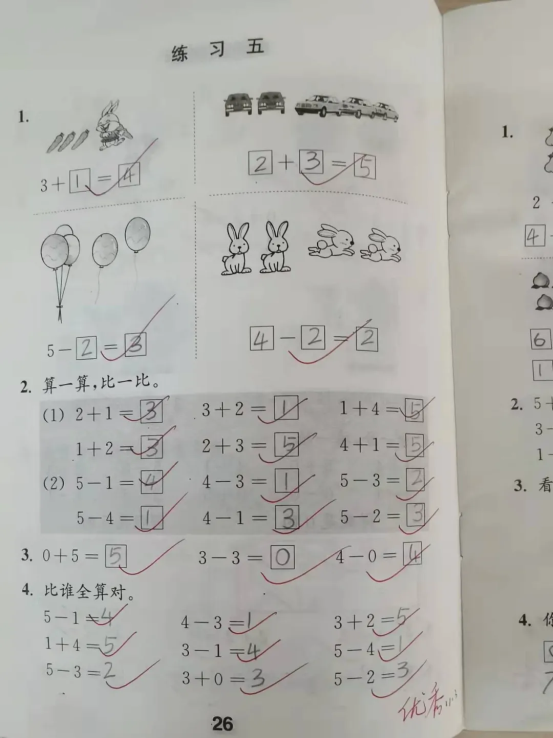 练 习 五
1.
3+1=4
2+3=5
5-2=3
4-2=2
2. 算一算,比一比。
(1) 2+1=3 3+2=1 1+4=5
1+2=3 2+3=5 4+1=5
(2) 5-1=4 4-3=1 5-3=2
5-4=1 4-1=3 5-2=3
3. 0+5=5 3-3=0 4-0=4
4. 比谁全算对。
5-1=4 4-3=1 3+2=5
1+4=5 3-1=4 5-4=1
5-3=2 3+0=3 5-2=3
优秀
26
1.
2
4
6
1
2. 5+
3-
1-
3. 看
4. 你